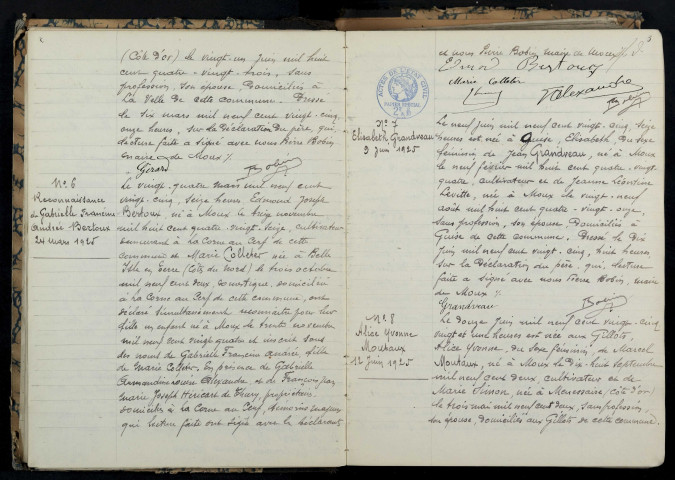 (Côte d'or) le vingt-un Juin mil huit
cent quatre-vingt-trois, sans
profession, son épouse, domiciliés à
La Ville de cette commune. Dressé
le dix mars mil neuf cent vingt-cinq,
onze heures, sur la déclaration du père, qui,
lecture faite a signé avec nous Pierre Bobin,
maire de Moux ./.
Gérard Bobin
N° 6
Reconnaissance
de Gabrielle Francine
Andrée Bertoux
24 mars 1925
Le vingt-quatre mars mil neuf cent
vingt-cinq, seize heures Edmond Joseph
Bertoux né à Moux le treize novembre
mil huit cent quatre-vingt-seize, cultivateur
demeurant à La Corne au Cerf de cette
commune et Marie Colleter née à Belle
Isle en Terre (Côtes du Nord) le trois octobre
mil neuf cent deux, domestique, domiciliée
à La Corne au Cerf de cette commune, ont
déclaré simultanément reconnaître pour leur
fille un enfant né à Moux le trente novembre
mil neuf cent vingt quatre et inscrit sous
les noms de Gabrielle Francine Andrée, fille
de Marie Colleter, en présence de Gabrielle
Alexandre et de François
Marie Joseph Héricard de Thury, propriétaires
domiciliés à La Corne au Cerf, témoins majeurs
qui lecture faite ont signé avec les déclarants
3
et nous Pierre Bobin, maire de Moux ./.
Edmond Bertoux
Marie Colleter
Alexandre
Bobin
ACTES DE L'ETAT CIVIL
N° 7
Elisabeth Grandveau
9 Juin 1925
Le neuf Juin mil neuf cent vingt-cinq, seize
heures est née à Guise, Elisabeth, du sexe
féminin de Jean Grandveau, né à Moux
le neuf février mil huit cent quatre-vingt-
quatre, cultivateur et de Jeanne Léontine
Levitte, née à Moux le vingt-neuf
août mil huit cent quatre-vingt-onze,
sans profession, son épouse, domiciliés à
Guise de cette commune. Dressé le dix
Juin mil neuf cent vingt-cinq, huit heures
sur la déclaration du père, qui, lecture
faite a signé avec nous Pierre Bobin, maire
de Moux ./.
Grandveau Bobin
N° 8
Alice Yvonne
Moutaux
12 Juin 1925
Le douze Juin mil neuf cent vingt-cinq
vingt et une heures est née aux Gillots,
Alice Yvonne, du sexe féminin, de Marcel
Moutaux, né à Moux le dix-huit septembre
mil neuf cent deux, cultivateur et de
Marie Simon, née à Menessaire (Côte d'or)
le trois mai mil neuf cent deux, sans profession,
son épouse, domiciliés aux Gillots de cette commune.